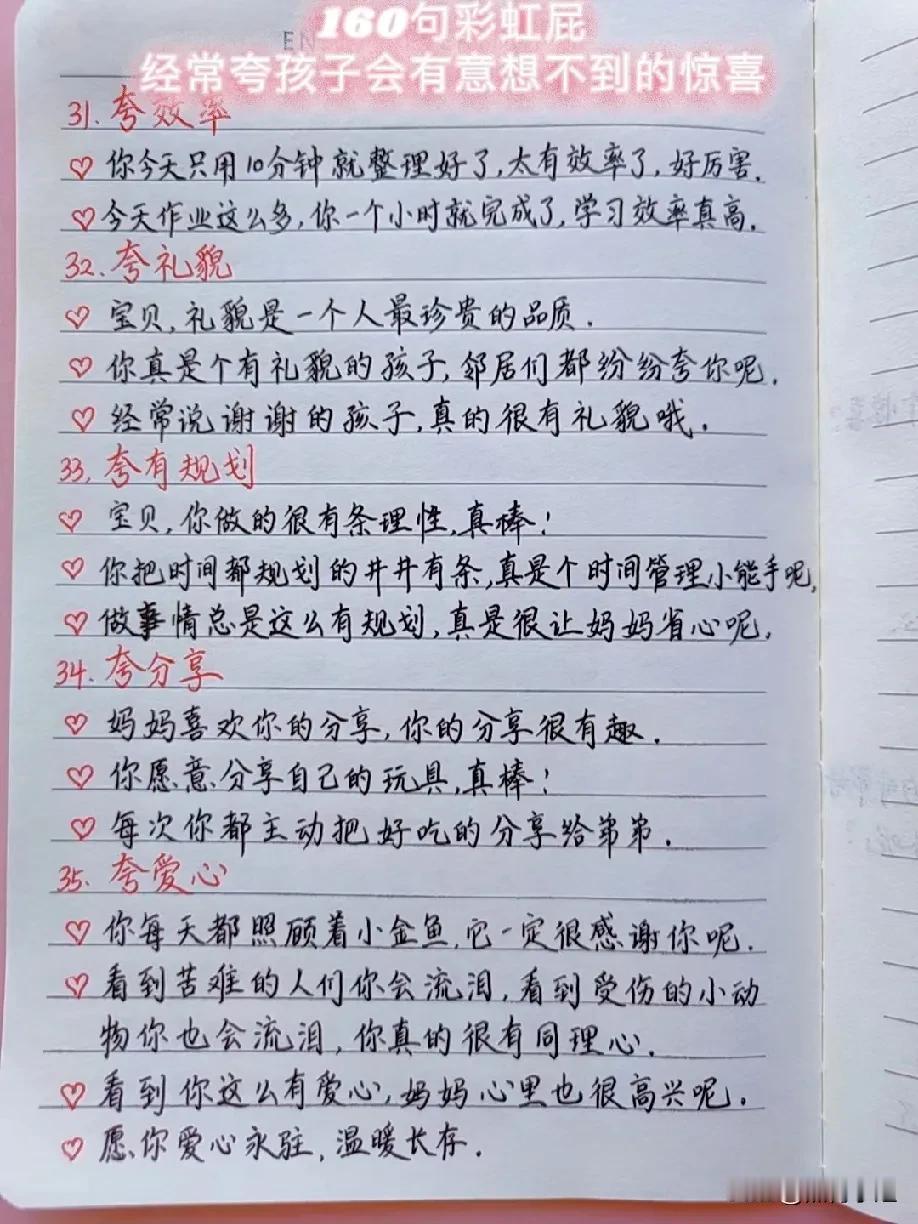 160句彩虹屁
EN
经常夸孩子会有意想不到的惊喜
31. 夸效率
♡ 你今天只用10分钟就整理好了,太有效率了,好厉害.
♡ 今天作业这么多,你一个小时就完成了,学习效率真高.
32. 夸礼貌
♡ 宝贝,礼貌是一个人最珍贵的品质.
♡ 你真是个有礼貌的孩子,邻居们都纷纷夸你呢.
♡ 经常说谢谢的孩子,真的很有礼貌哦.
33, 夸有规划
♡ 宝贝,你做的很有条理性,真棒!
♡ 你把时间都规划的井井有条,真是个时间管理小能手呢,
♡ 做事情总是这么有规划,真是很让妈妈省心呢,
34. 夸分享
♡ 妈妈喜欢你的分享,你的分享很有趣.
♡ 你愿意分享自己的玩具,真棒!
♡ 每次你都主动把好吃的分享给弟弟.
35. 夸爱心
♡ 你每天都照顾着小金鱼,它一定很感谢你呢.
♡ 看到苦难的人们你会流泪,看到受伤的小动
物你也会流泪,你真的很有同理心.
♡ 看到你这么有爱心,妈妈心里也很高兴呢.
♡ 愿你爱心永驻,温暖长存.